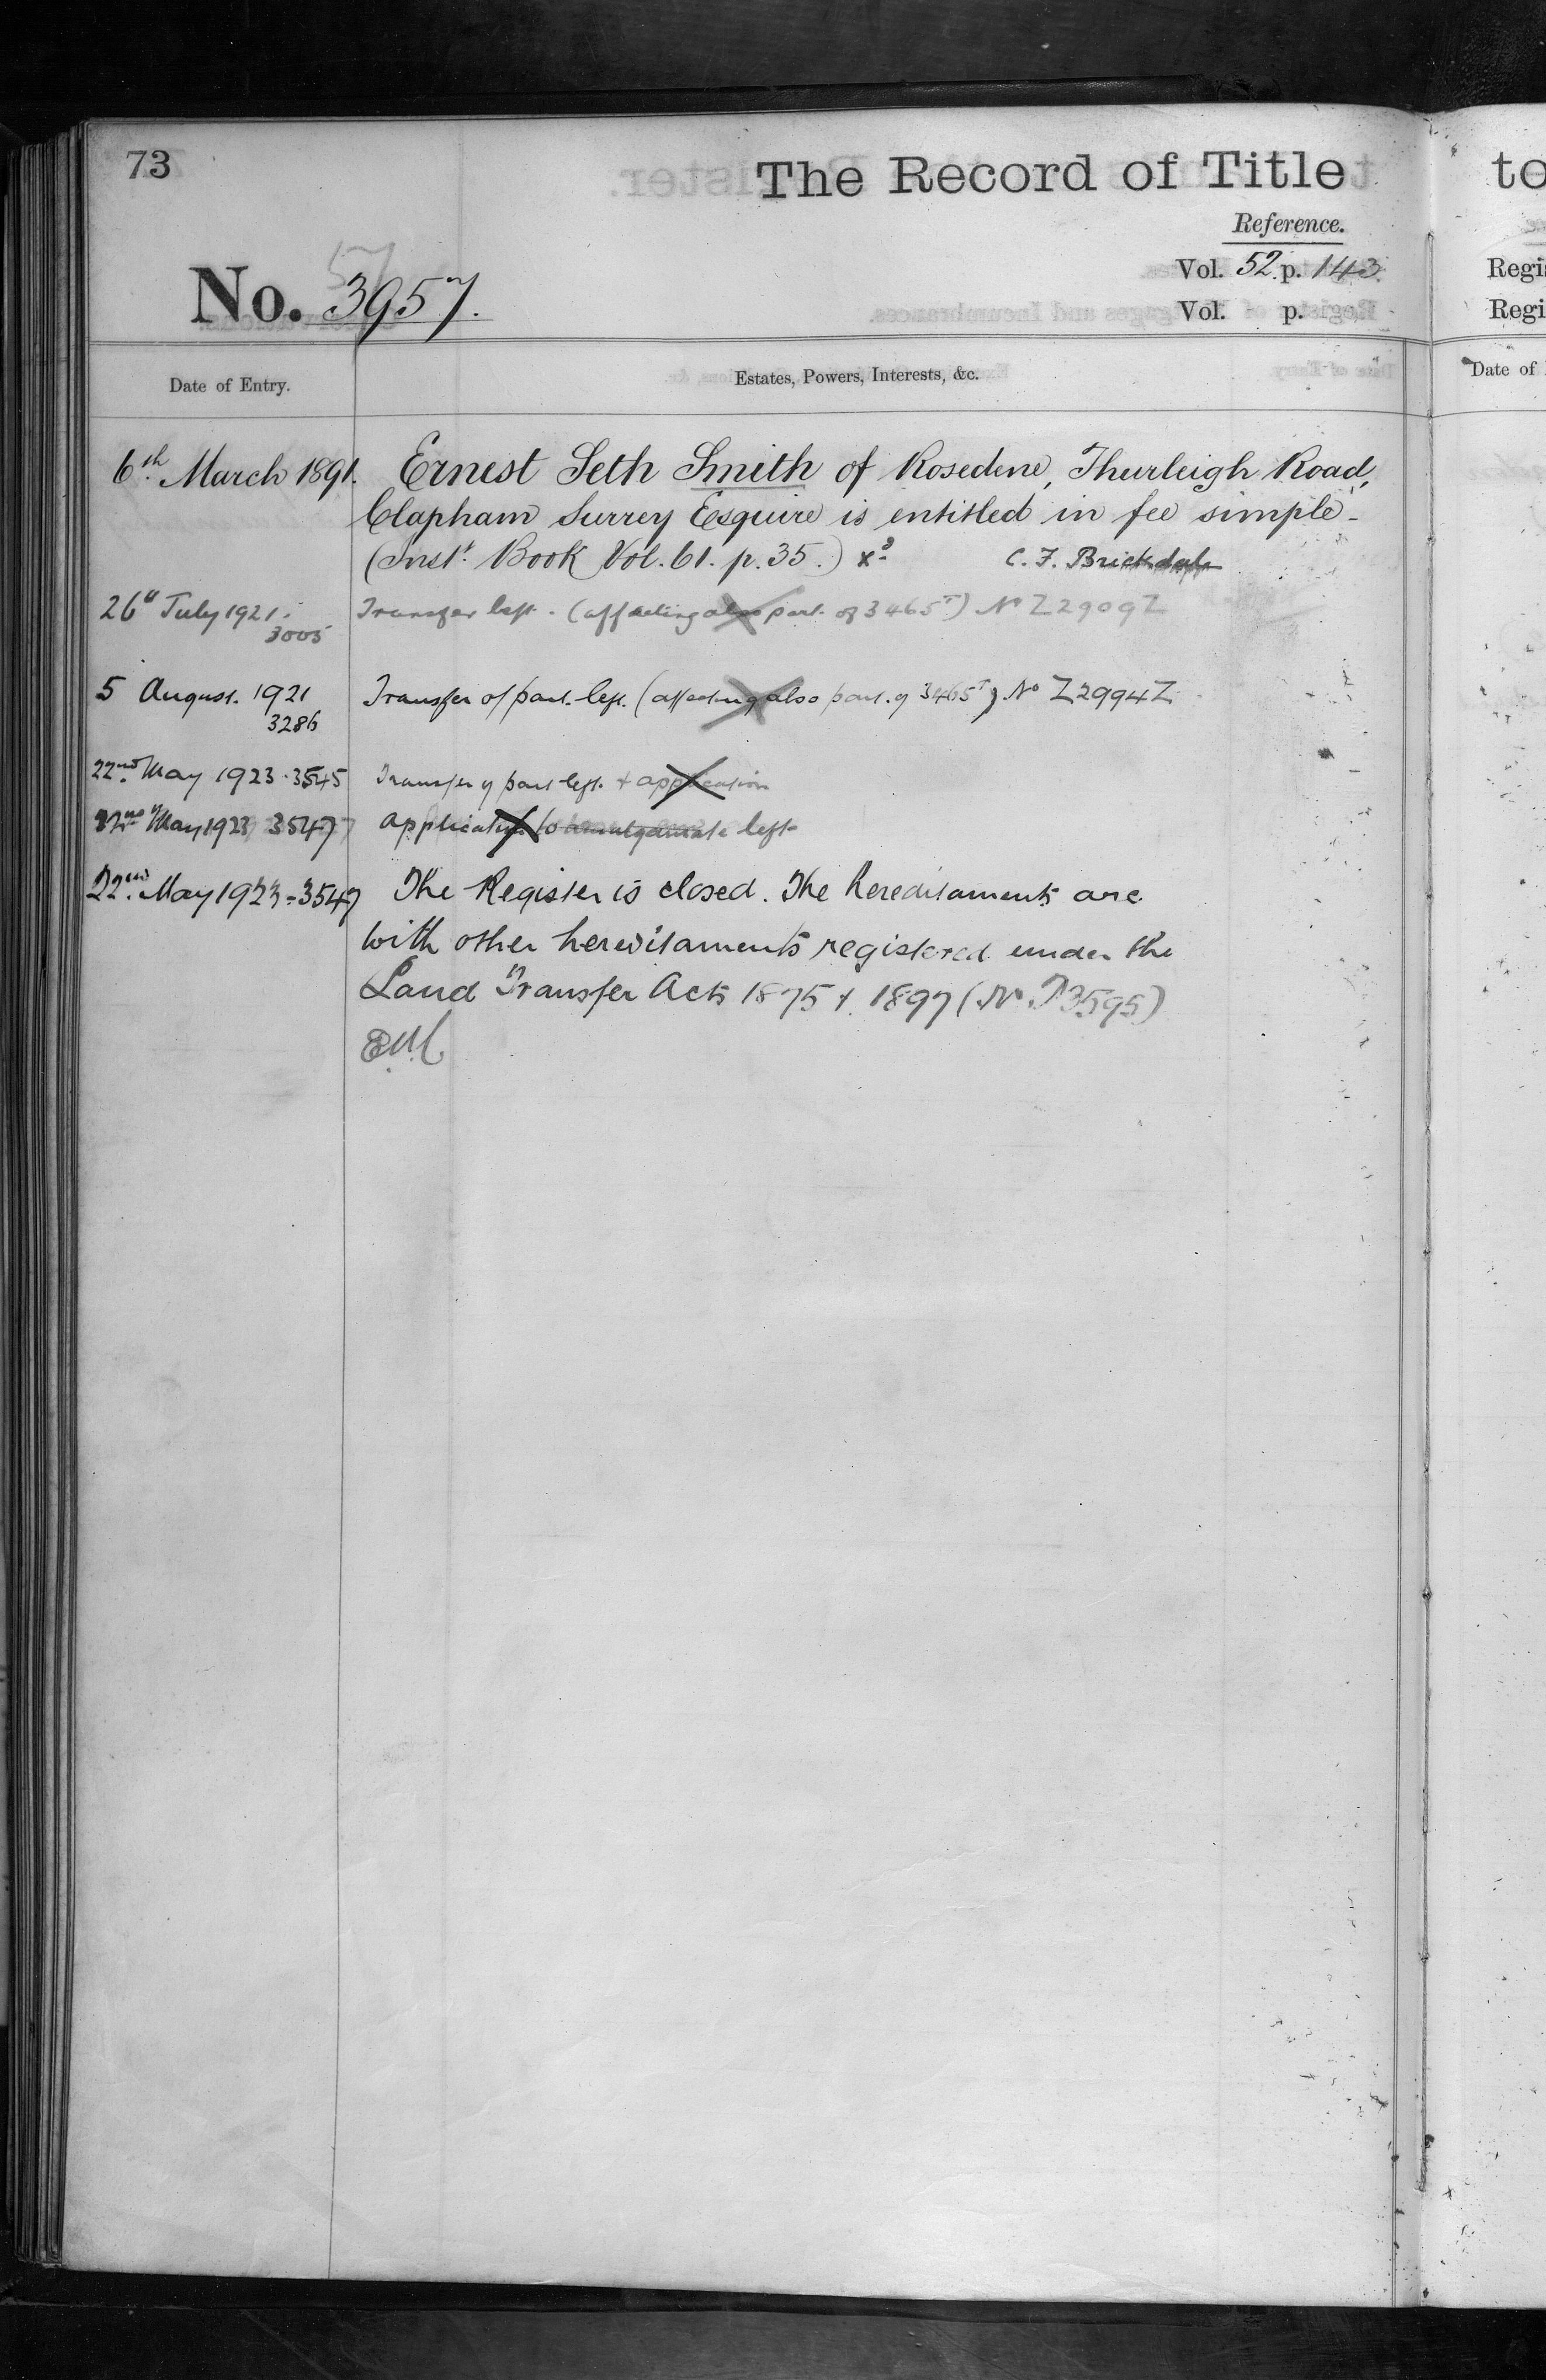 73
The Record of Title
Reference.
Vol. 52. p. 143.
Vol. p.
57
No. 3957.
Date of Entry.
Estates, Powers, Interests, &c.
6th March 1891. Ernest Seth Smith of Rosedene, Thurleigh Road,
Clapham Surrey Esquire is entitled in fee simple -
(Inst. Book Vol. 61. p. 35.) C. F. Brickdale
26th July 1921. Transfer left. (affecting also part of 3465T) No Z2909Z
3005
5 August. 1921 Transfer of part left. (affecting also part of 3465T) No Z2994Z
3286
22nd May 1923. 3545 Transfer of part left + application
22nd May 1923 3547 application to amalgamate left
22nd May 1923 - 3547 The Register is closed. The hereditaments are
with other hereditaments registered under the
Land Transfer Acts 1875 + 1897 (No. P3595)
to
Regi
Regi
Date of